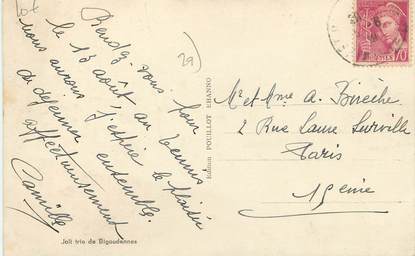 Rendez-vous pour
le 13 août, au Tennis
nous aurons, j'espère le plaisir
de déjeuner ensemble.
affectueusement
Camille
Joli trio de Bigoudennes
29
Edition POUILLOT
Mr et Mme A. Birèche
2 Rue Laure Surville
Paris
15ème
70